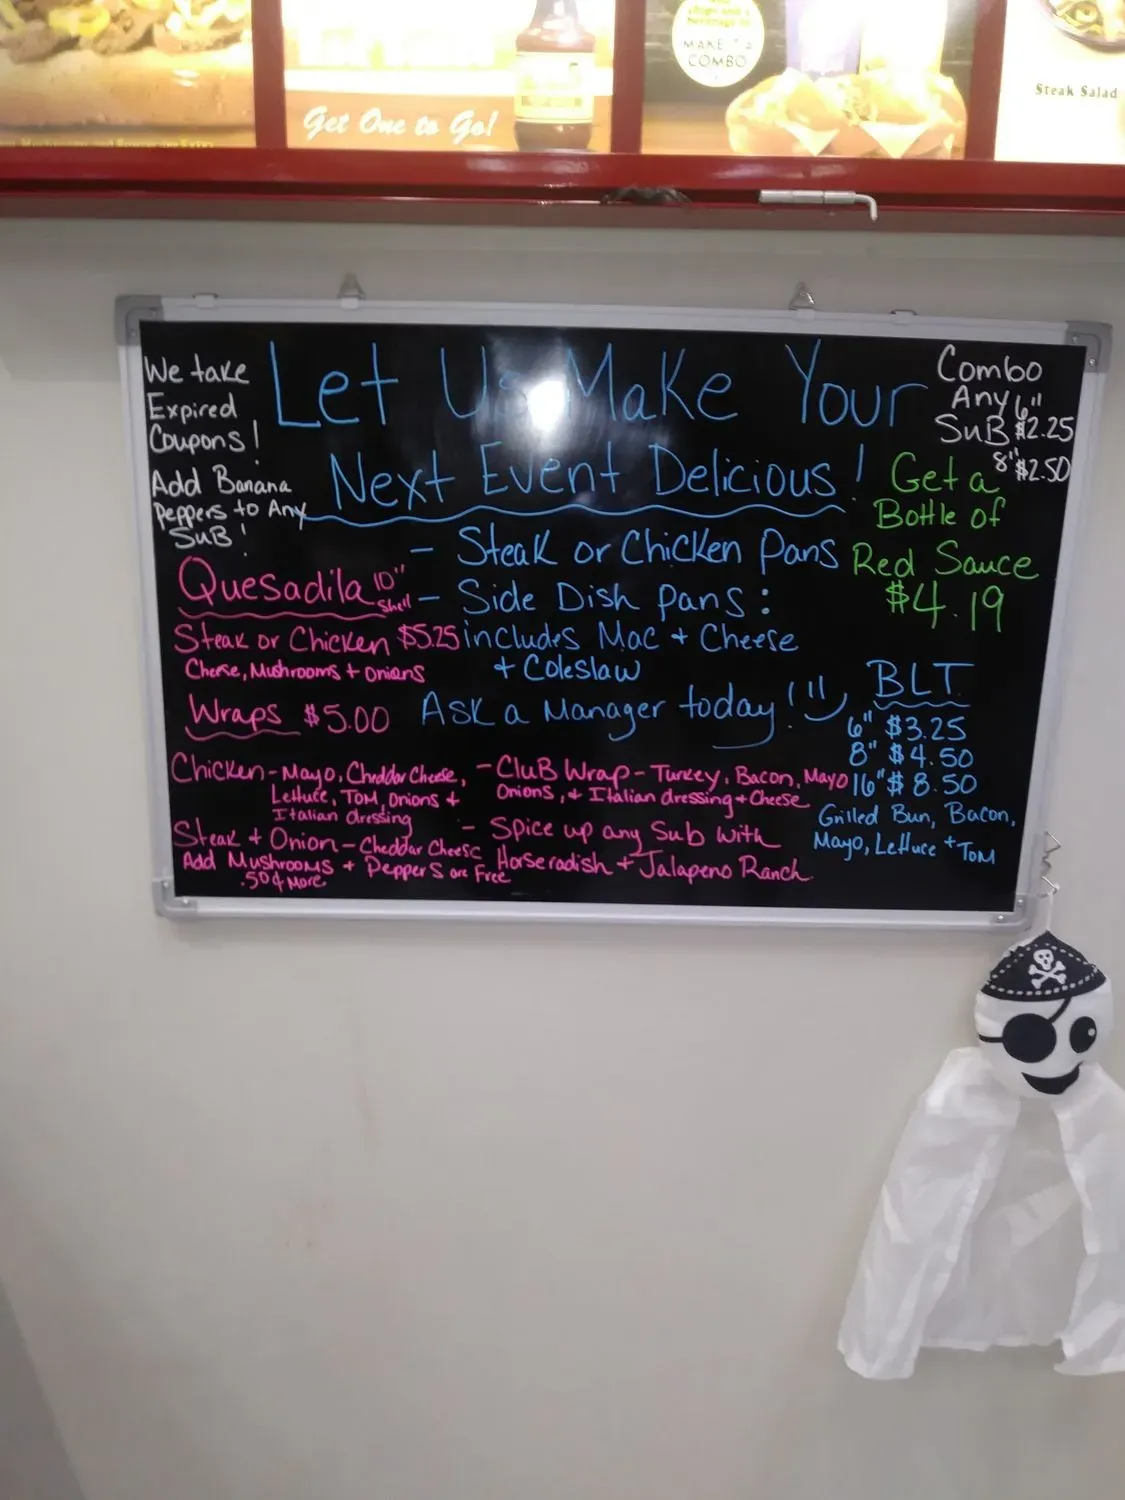 Get One to Go!
MAKE IT A
COMBO
Steak Salad
We take
Expired
Coupons!
Add Banana
Peppers to Any
SuB!
Let Us Make Your
Next Event Delicious!
- Steak or Chicken Pans
- Side Dish pans:
includes Mac + Cheese
+ Coleslaw
Ask a Manager today!
Combo
Any 6"
SuB $2.25
8" $2.50
Get a
Bottle of
Red Sauce
$4.19
Quesadila 10"
Shell
Steak or Chicken $5.25
Cheese, Mushrooms + onions
Wraps $5.00
Chicken - Mayo, Cheddar Cheese,
Lettuce, Tom, Onions +
Italian dressing
Steak + Onion - Cheddar Cheese
Add Mushrooms + Peppers are Free
.50¢ More
- CluB Wrap - Turkey, Bacon, Mayo
Onions, + Italian dressing + Cheese
- Spice up any Sub with
Horseradish + Jalapeno Ranch
BLT
6" $3.25
8" $4.50
16" $8.50
Grilled Bun, Bacon,
Mayo, Lettuce + Tom